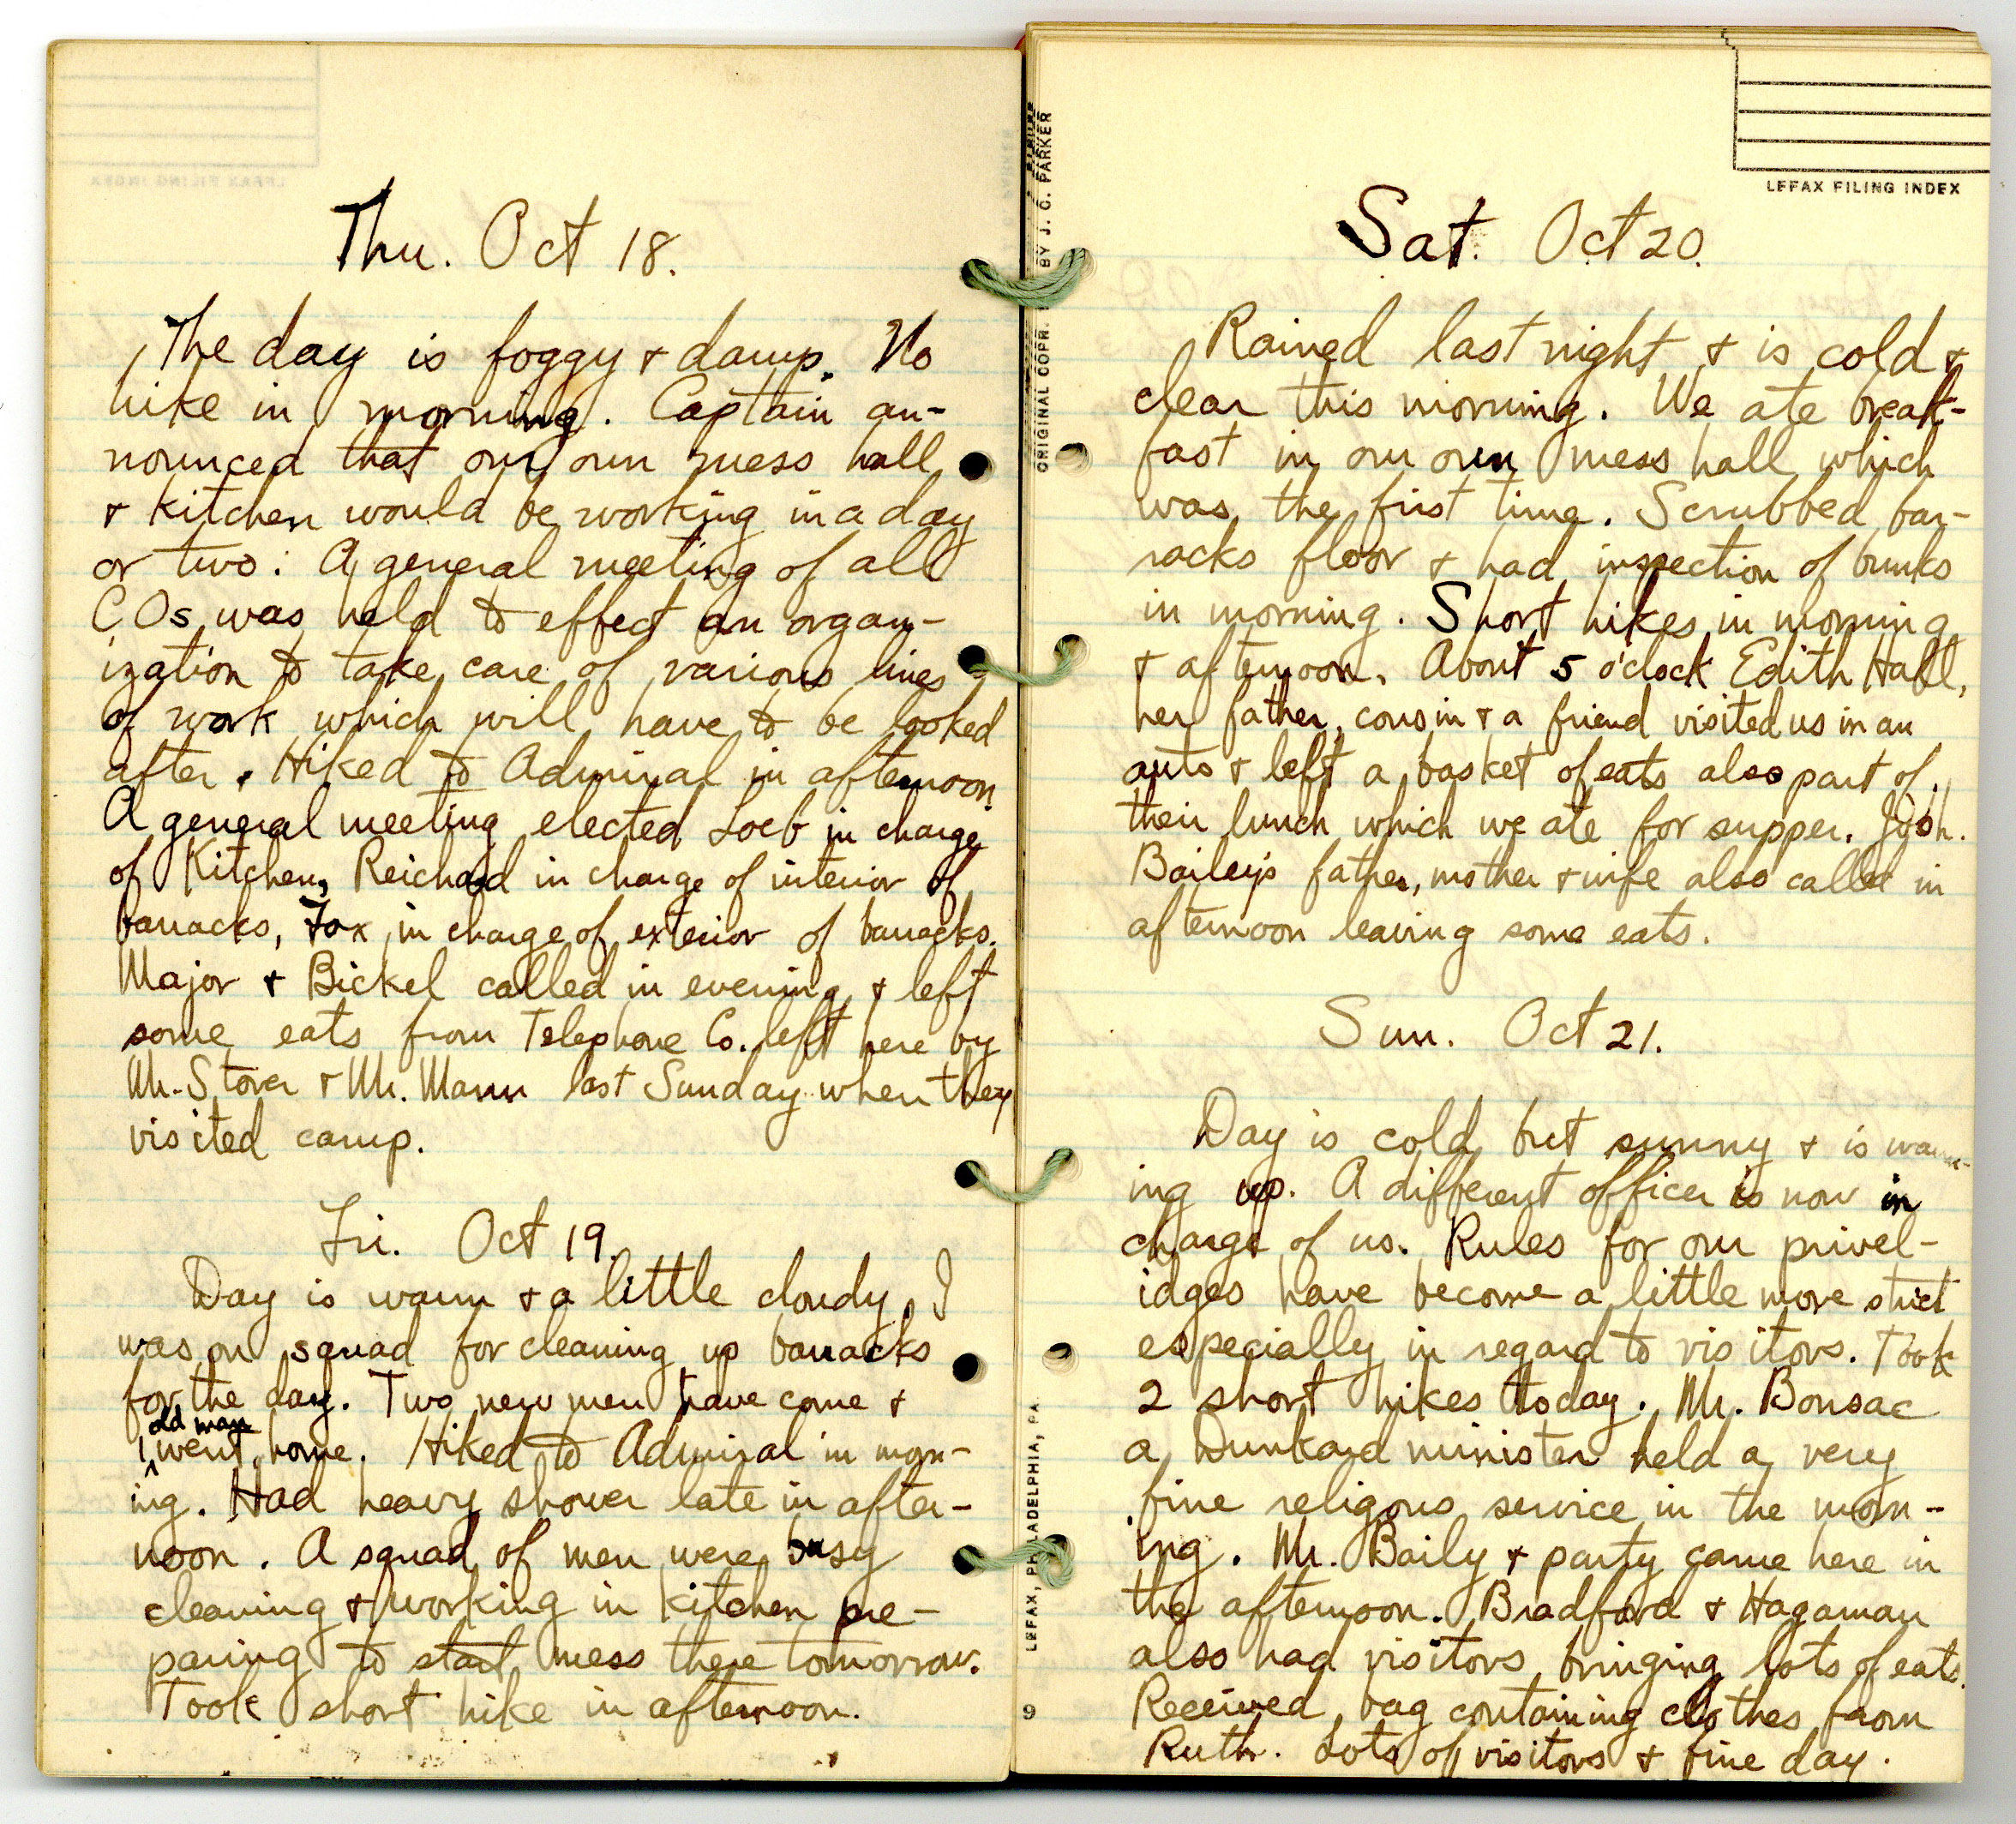 Thu. Oct 18.
The day is foggy + damp. No
hike in morning. Captain an-
nounced that our own mess hall
+ kitchen would be working in a day
or two. A general meeting of all
COs was held to effect an organ-
ization to take care of various lines
of work which will have to be looked
after. Hiked to Admiral in afternoon
A general meeting elected Loeb in charge
of Kitchen, Reichard in charge of interior of
barracks, Fox in charge of exterior of barracks.
Major + Bickel called in evening + left
some eats from Telephone Co. left here by
Mr. Stover + Mr. Mann last Sunday when they
visited camp.
Fri. Oct 19.
Day is warm + a little cloudy. I
was on squad for cleaning up barracks
for the day. Two new men have come +
old man
1 went home. Hiked to Admiral in morn-
ing. Had heavy shower late in after-
noon. A squad of men were busy
cleaning + working in kitchen pre-
paring to start mess there tomorrow.
Took short hike in afternoon.
LEFAX FILING INDEX
ORIGINAL COPR. BY J. C. PARKER
Sat. Oct 20.
Rained last night + is cold +
clear this morning. We ate break-
fast in our own mess hall which
was the first time. Scrubbed bar-
racks floor + had inspection of bunks
in morning. Short hikes in morning
+ afternoon. About 5 o'clock Edith Hall,
her father, cousin + a friend visited us in an
auto + left a basket of eats also part of
their lunch which we ate for supper. Josh.
Bailey's father, mother + wife also called in
afternoon leaving some eats.
Sun. Oct 21.
Day is cold but sunny + is warm-
ing up. A different officer is now in
charge of us. Rules for our privel-
idges have become a little more strict
especially in regard to visitors. Took
2 short hikes today. Mr. Bonsac
a Dunkard minister held a very
fine religous service in the morn-
ing. Mr. Baily + party came here in
the afternoon. Bradford + Hagaman
also had visitors bringing lots of eats.
Received bag containing clothes from
Ruth. Lots of visitors + fine day.
LEFAX, PHILADELPHIA, PA
9